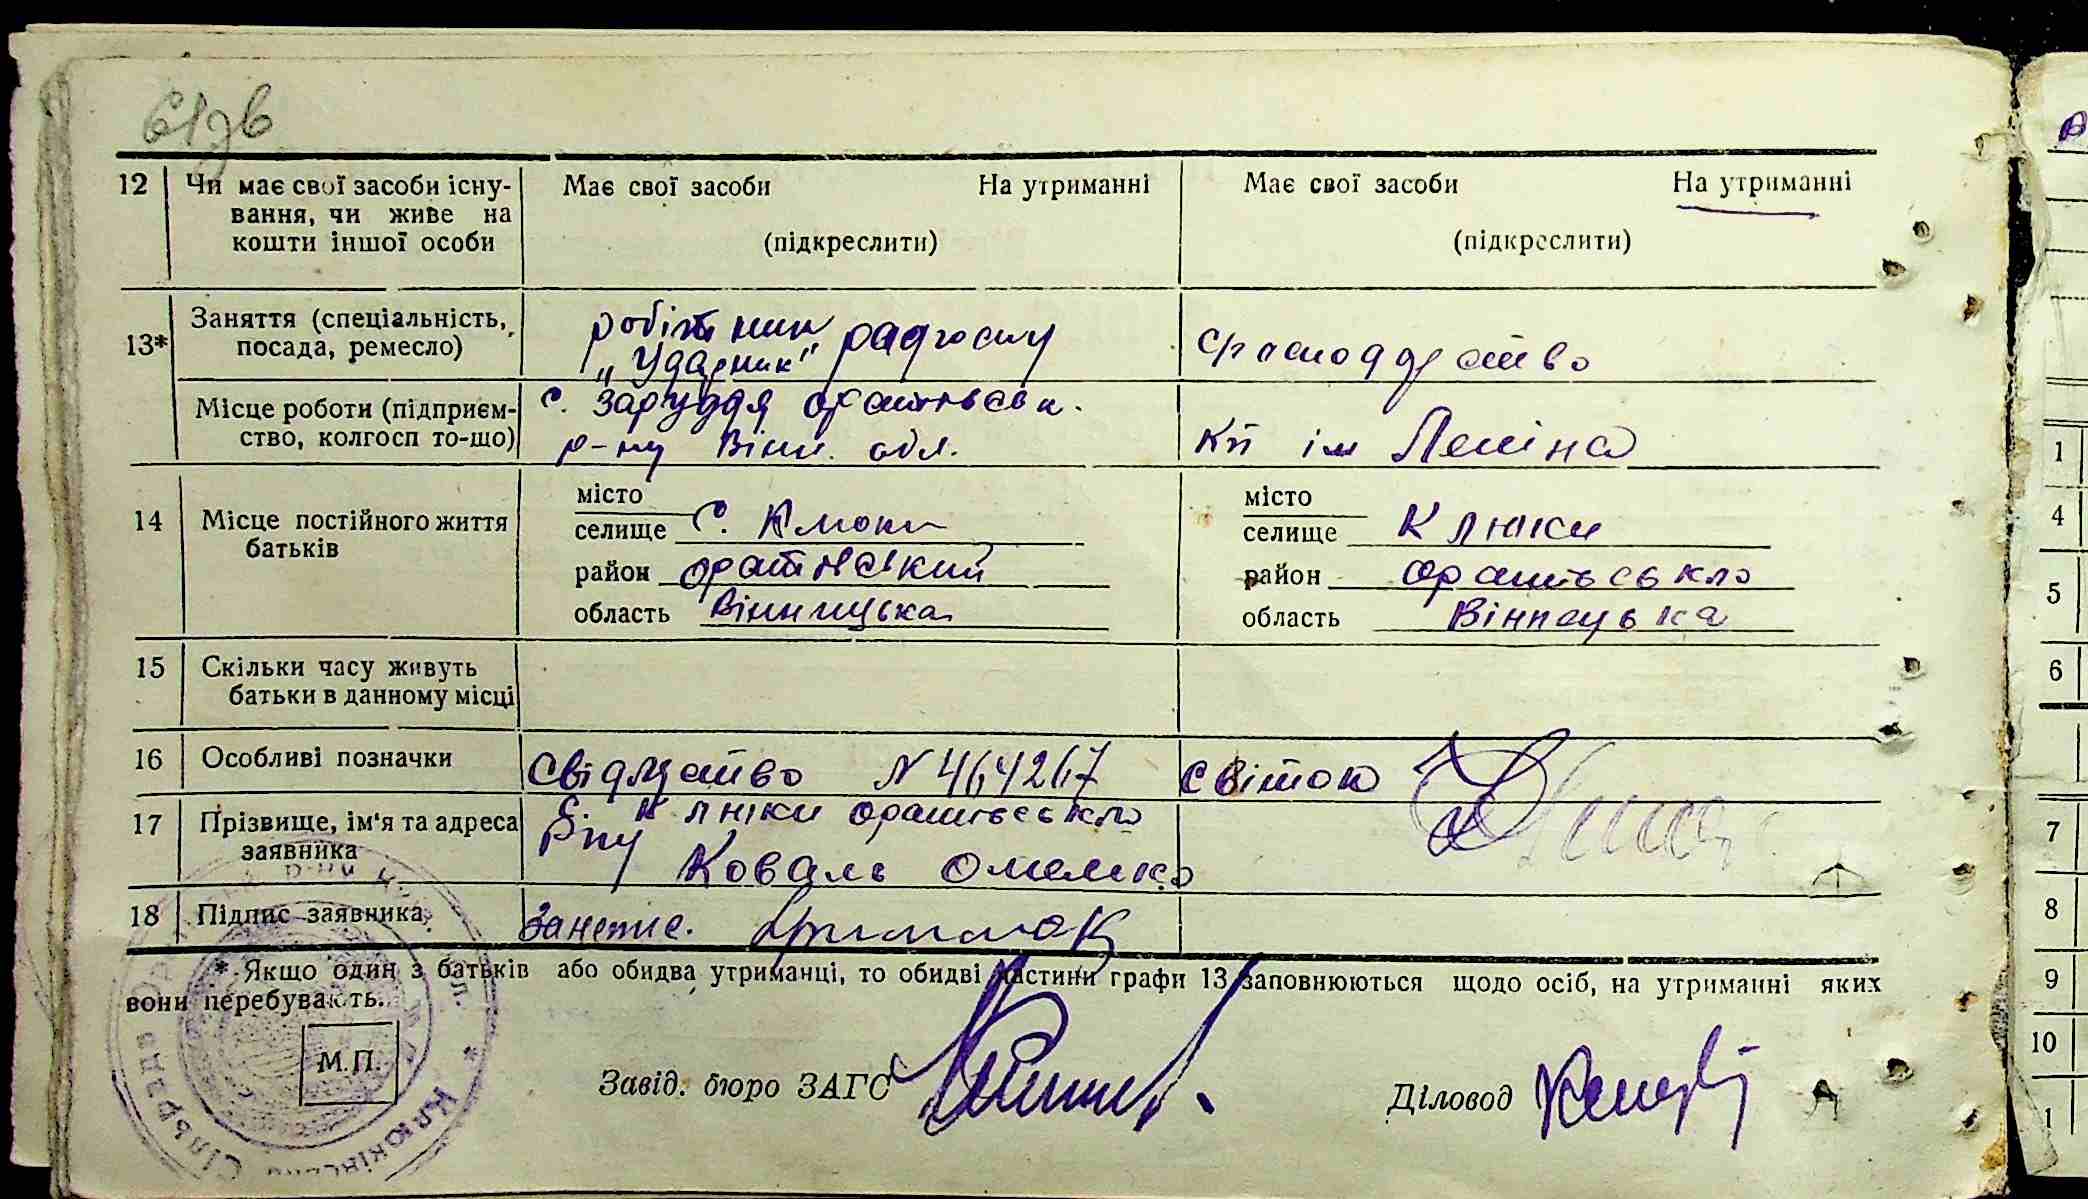 12 Чи має свої засоби існу-
вання, чи живе на
кошти іншої особи
Має свої засоби На утриманні
(підкреслити)
Має свої засоби На утриманні
(підкреслити)
13* Заняття (спеціальність,
посада, ремесло)
робітник радгоспу
„Ударник"
Місце роботи (підприєм-
ство, колгосп то-що)
с. Заруддя
р-ну Вінн. обл.
кп ім Леніна
14 Місце постійного життя
батьків
місто
селище с.
район оратівський
область Вінницька
місто
селище Клюки
район оратівсько
область Вінницька
15 Скільки часу живуть
батьки в данному місці
16 Особливі позначки
свідоцтво N 464267 світою
17 Прізвище, ім'я та адреса
заявника
Клюки оратівсько
Коваль Омелько
18 Підпис заявника
* Якщо один з батьків або обидва утриманці, то обидві частини графи 13 заповнюються щодо осіб, на утриманні яких
вони перебувають.
М.П.
Завід. бюро ЗАГС
Діловод
1
4
5
6
7
8
9
10
1